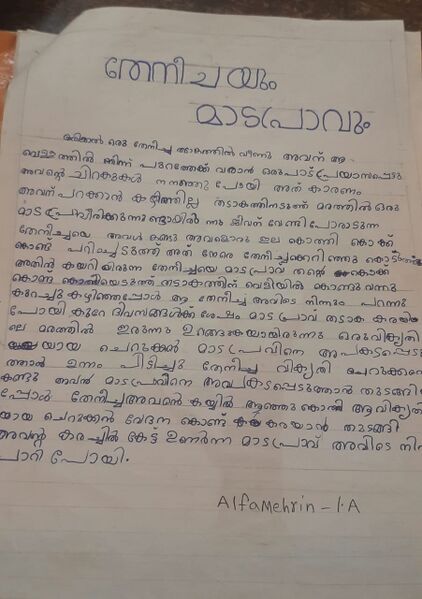 തേനീച്ചയും
മാടപ്രാവും
ഒരിക്കൽ ഒരു തേനീച്ച തടാകത്തിൽ വീണു അവന് ആ
വെള്ളത്തിൽ നിന്ന് പുറത്തേക്ക് വരാൻ ഒരുപാട് പ്രയാസപ്പെട്ടു
അവന്റെ ചിറകുകൾ നനഞ്ഞു പോയി അത് കാരണം
അവന് പറക്കാൻ കഴിഞ്ഞില്ല തടാകത്തിനടുത്ത് മരത്തിൽ ഒരു
മാടപ്രാവിരിക്കുന്നുണ്ടായിരുന്നു ജീവന് വേണ്ടി പോരാടുന്ന
തേനീച്ചയെ അവൾ കണ്ടു അവളൊരു ഇല കൊത്തി കൊക്ക്
കൊണ്ട് പറിച്ചെടുത്ത് അത് തേനീച്ചക്കെറിഞ്ഞു കൊടുത്തു
അതിൽ കയറിയിരുന്ന തേനീച്ചയെ മാടപ്രാവ് തന്റെ കൊക്ക
കൊണ്ട് തടാകത്തിന് വെളിയിൽ കൊണ്ടു വന്നു
കുറച്ചു കഴിഞ്ഞപ്പോൾ ആ തേനീച്ച അവിടെ നിന്നും പറന്നു
പോയി കുറേ ദിവസങ്ങൾക്ക് ശേഷം മാടപ്രാവ് തടാക കരയി
ലെ മരത്തിൽ ഇരുന്നു ഉറങ്ങുകയായിരുന്നു ഒരു വികൃതി
യായ ചെറുക്കൻ മാടപ്രാവിനെ അപകടപ്പെടു
ത്താൻ ഉന്നം പിടിച്ചു തേനീച്ച വികൃതി ചെറുക്കനെ
കണ്ടു അവൻ മാടപ്രാവിനെ അപകടപ്പെടുത്താൻ തുടങ്ങി
പ്പോൾ തേനീച്ച അവൻ കയ്യിൽ ആഞ്ഞു കൊത്തി ആ വികൃതി
യായ ചെറുക്കൻ വേദന കൊണ്ട് കരയാൻ തുടങ്ങി
അവന്റ കരച്ചിൽ കേട്ട് ഉണർന്ന മാടപ്രാവ് അവിടെ നിന
പാറി പോയി.
Alfa Mehrin - 1.A